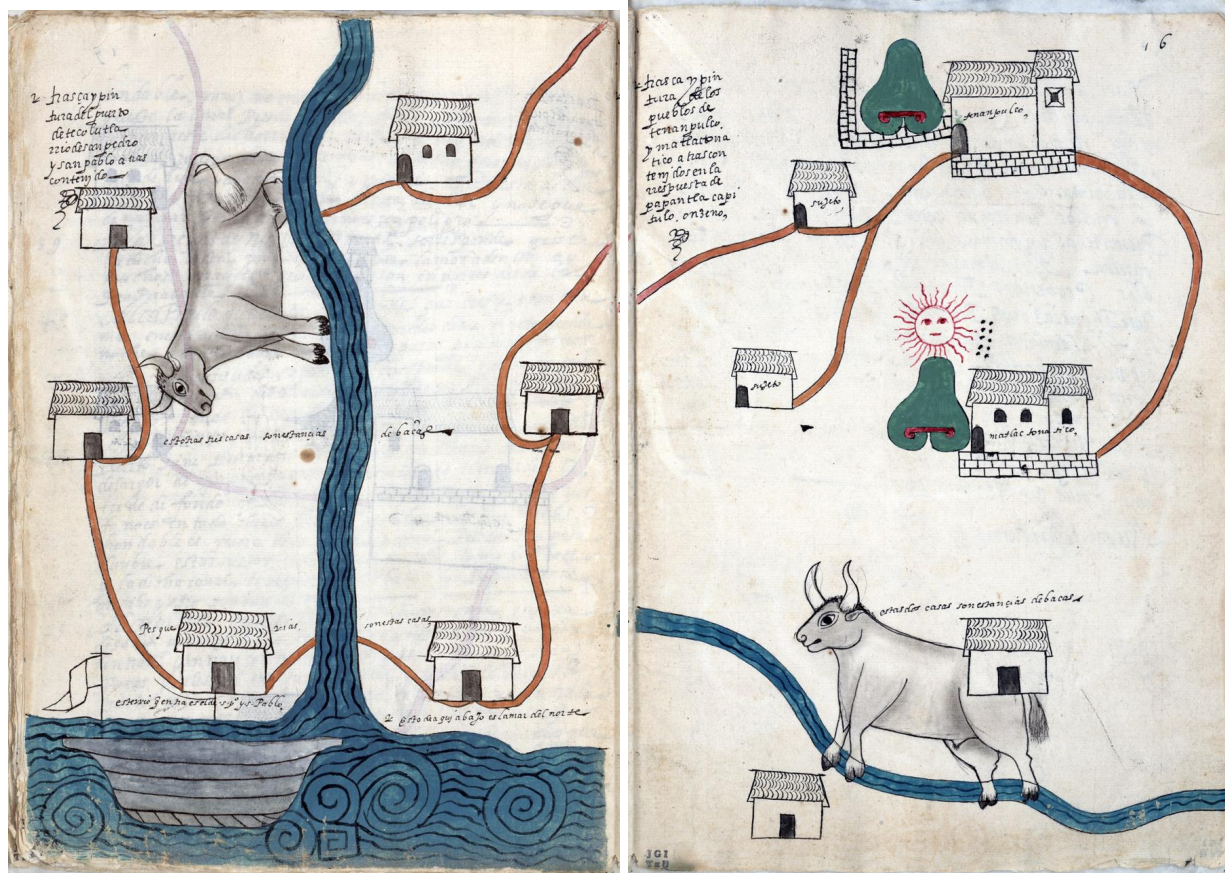 trasça y pin
tura del puerto
de tecolutla
rrio de san pedro
y san pablo atras
contenido
estotras seis casas son estançias de bacas
Pesque rias son estas casas
este rrio q entra es el de s. p° y s. Pablo,
esto de aqui abajo es la mar del norte
16
trasca y pin
tura de los
pueblos de
tenanpulco,
y matlactona
tico atras con
tenidos en la
rrespuesta de
papantla capi
tulo, onzeno,
tenanpulco,
sujeto
sujeto
matlac tona tico,
estas dos casas son estançias de bacas
JGI